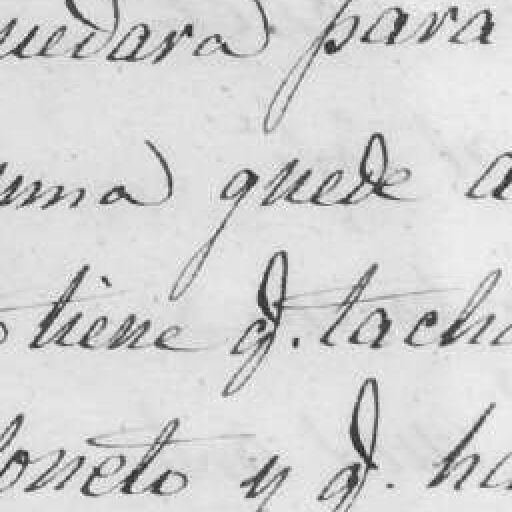 uedara para
uma quede a
tiene q. tacha
soneto y q. ha